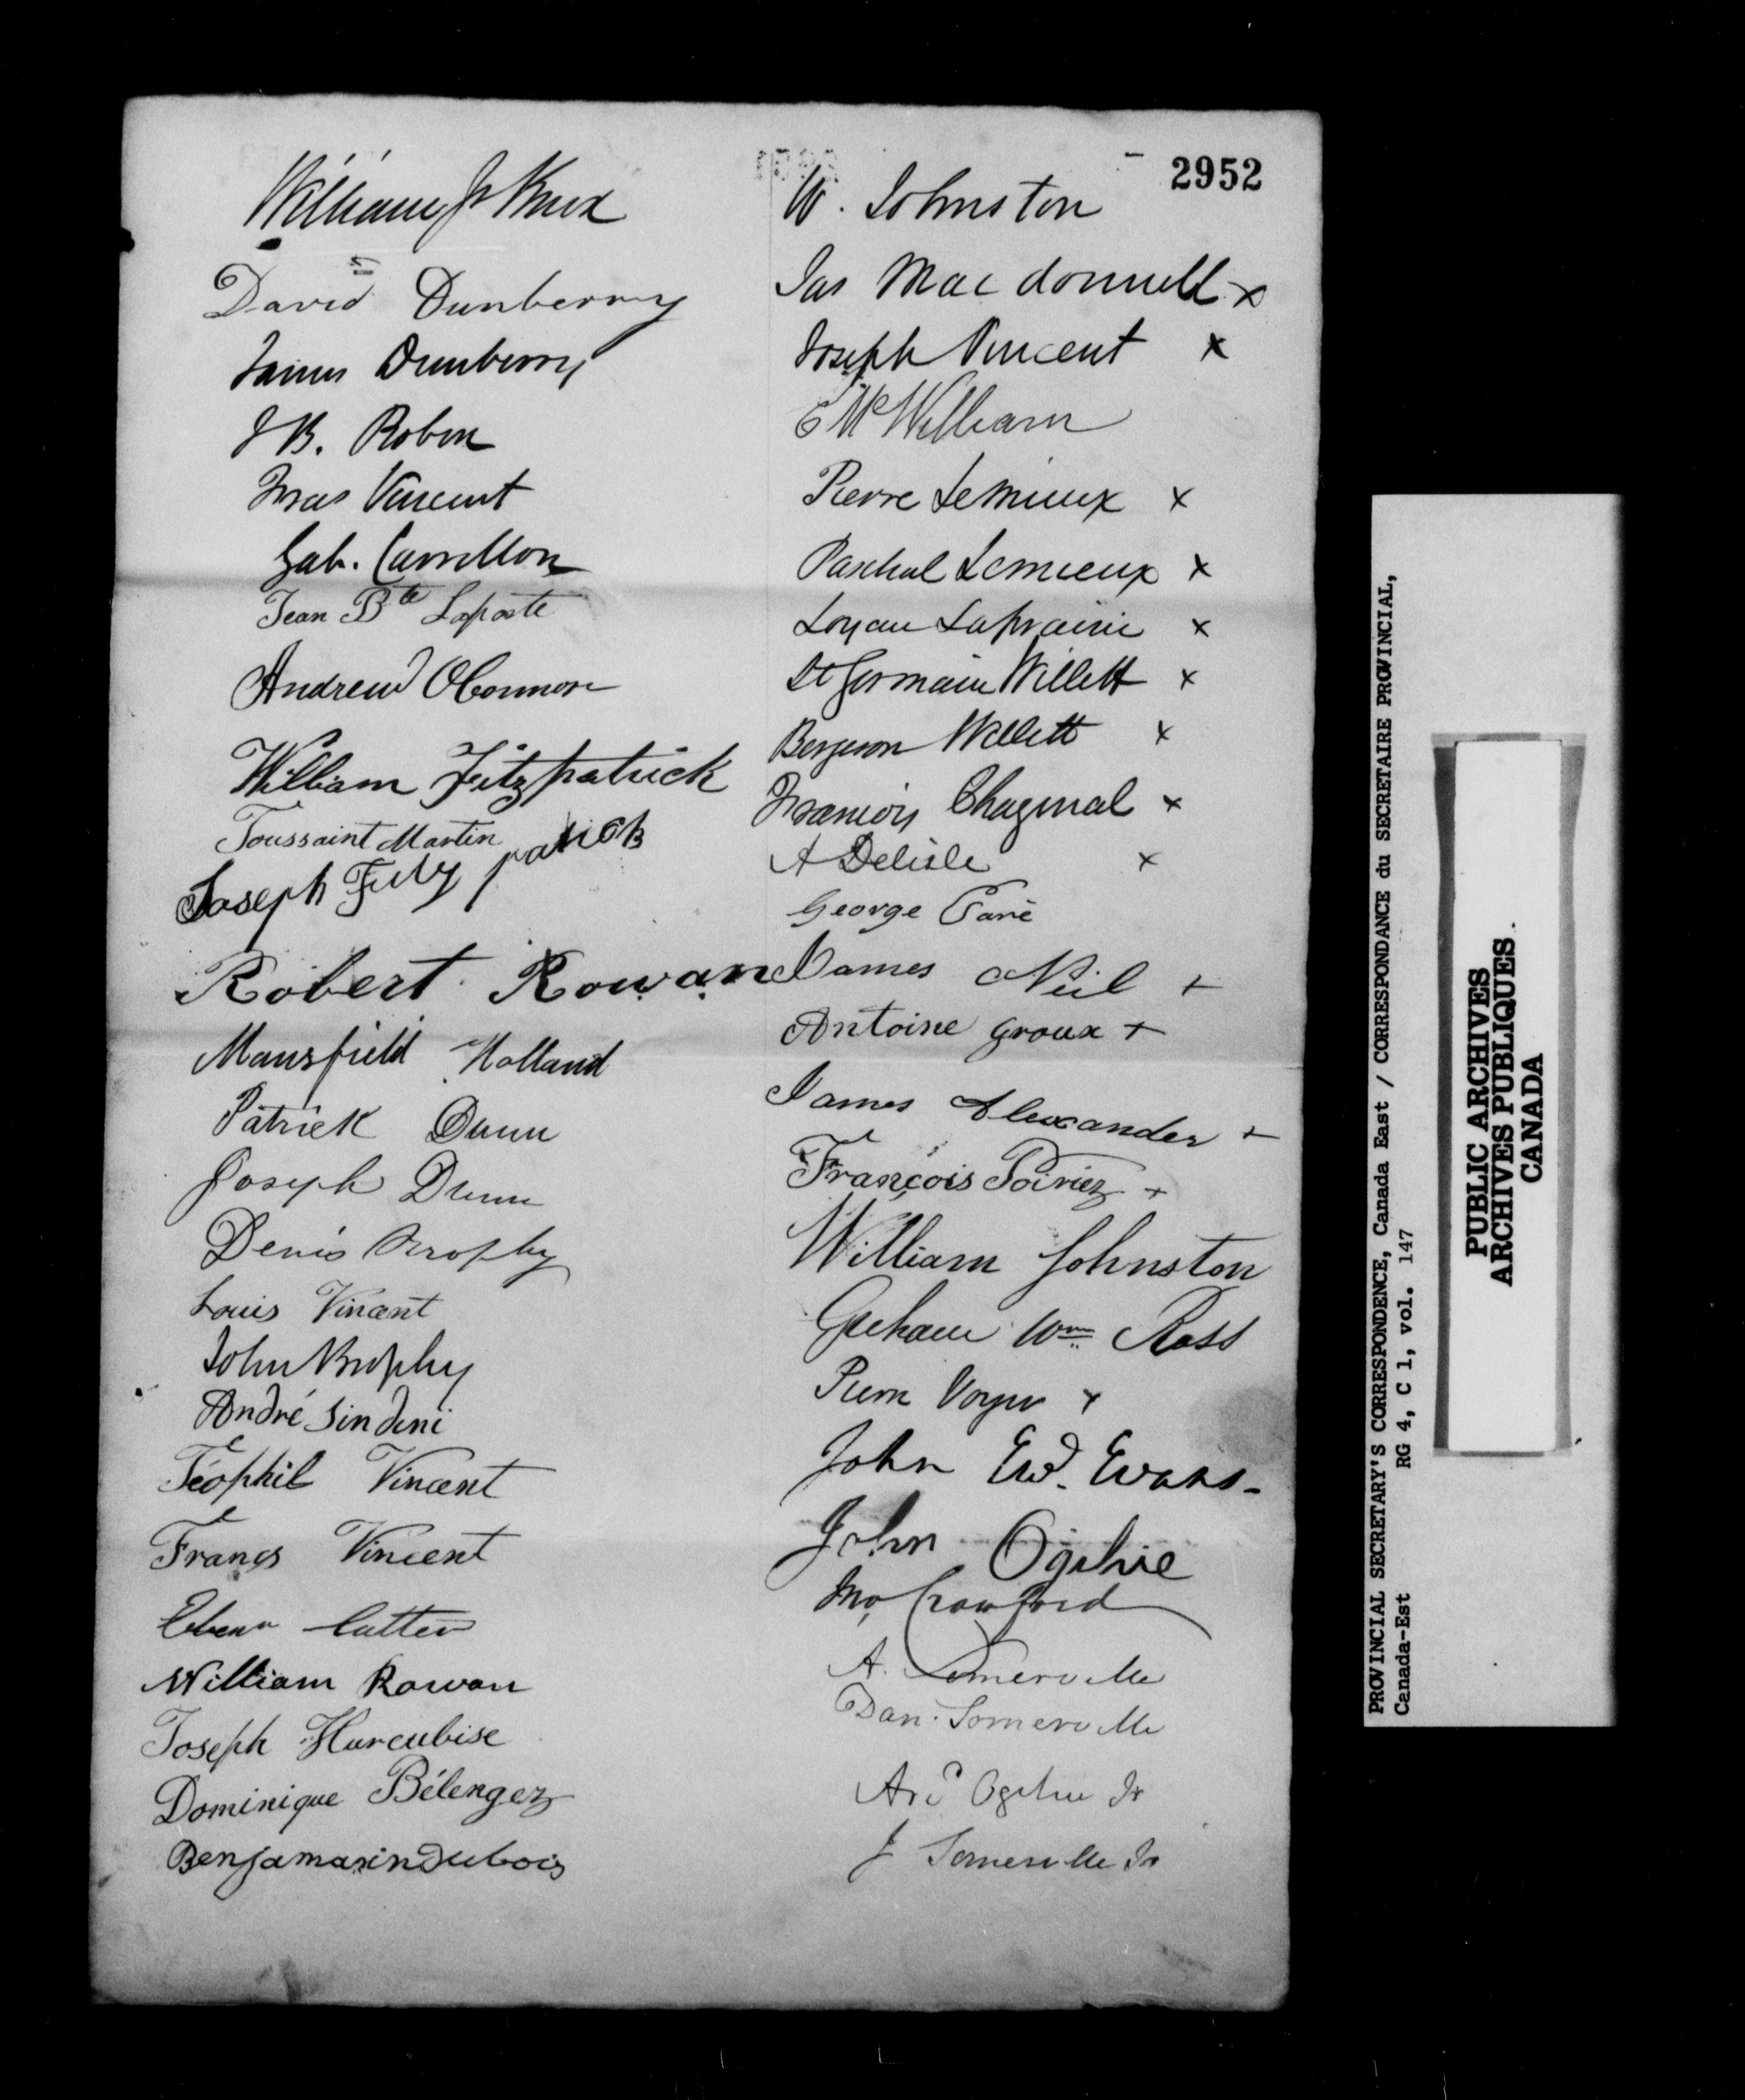 2952
William J Knox
David Dunberry
James Dunberry
J B. Robin
Fras Vincent
Gab. Carrillon
Jean Bte Laporte
Andrew OConnor
William Fitzpatrick
Toussaint Martin
Joseph Fitzpatrick
Robert Rowan
Mansfield Holland
Patrick Dunn
Joseph Dunn
Denis Brophy
Louis Vincent
John Brophy
André
Téophil Vincent
Francs Vincent
Cutter
William Rowan
Joseph Hurcubise
Dominique Bélenger
Benjamaxin Dubois
W. Johnston
Jas Macdonnell x
Joseph Vincent x
E McWilliam
Pierre Lemieux x
Paschal Lemieux x
Laprairie x
St Germain Willett x
Bergeron Willett x
François Chagnal x
A Delisle x
George Paré
James Neil +
Antoine Groux +
James Alexander +
François Poirier +
William Johnston
Graham Wm Ross
Pierre Voyer x
John Ewd. Evans-
John Ogilvie
Jno Crawford
A. Somerville
Dan. Somerville
Ard Ogilvie Jr
J Somerville Jr
PROVINCIAL SECRETARY'S CORRESPONDENCE, Canada East / CORRESPONDANCE du SECRETAIRE PROVINCIAL,
Canada-Est RG 4, C 1, vol. 147
PUBLIC ARCHIVES
ARCHIVES PUBLIQUES
CANADA